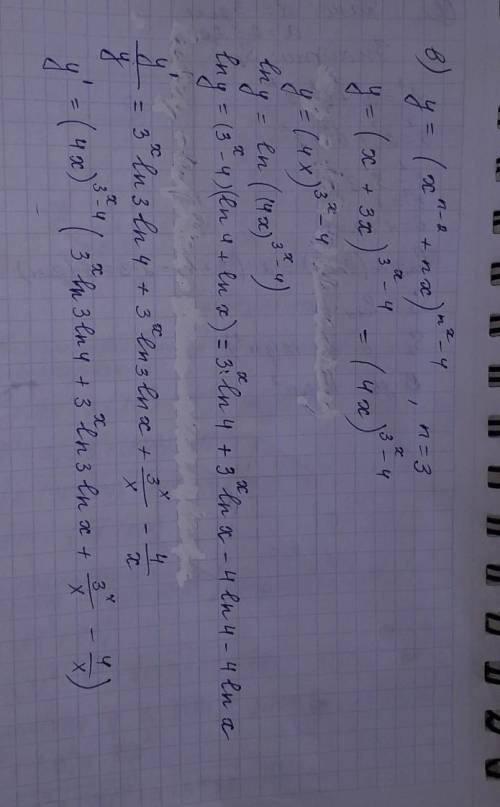 в) y = (x^{n-2} + nx)^{n^x-4}, n=3
y = (x + 3x)^{3^x-4} = (4x)^{3^x-4}
y = (4x)^{3^x-4}
ln y = ln ((4x)^{3^x-4})
ln y = (3^x-4)(ln 4 + ln x) = 3^x·ln 4 + 3^x ln x - 4 ln 4 - 4 ln x
y'/y = 3^x ln 3 ln 4 + 3^x ln 3 ln x + 3^x/x - 4/x
y' = (4x)^{3^x-4} (3^x ln 3 ln 4 + 3^x ln 3 ln x + 3^x/x - 4/x)